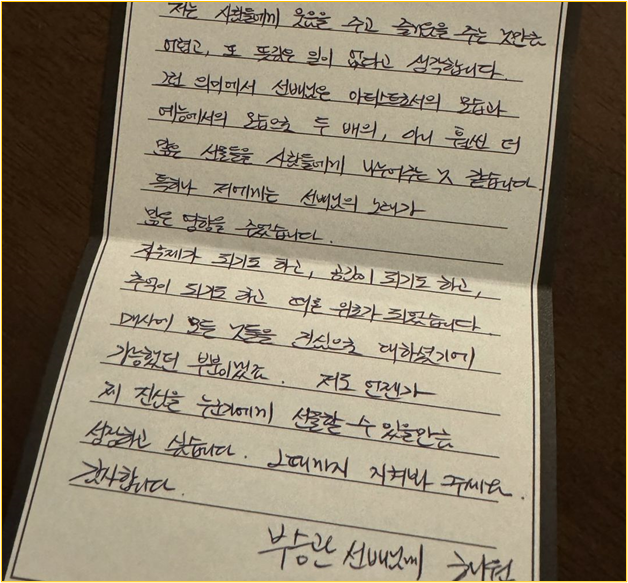 저는 사람들에게 웃음을 주고 즐거움을 주는 것만큼
어렵고, 또 뜻깊은 일이 없다고 생각합니다.
그런 의미에서 선배님은 아티스트로서의 모습과
예능에서의 모습으로 두 배의, 아니 훨씬 더
많은 선물들을 사람들에게 나누어주는 것 같습니다.
특히나 저에게는 선배님의 노래가
많은 영향을 주었습니다.
지우제가 되기도 하고, 공감이 되기도 하고,
추억이 되기도 하고 때론 위로가 되었습니다.
매사에 모든 것들을 진심으로 대하셨기에
가능했던 부분이었죠. 저도 언젠가
제 진심을 누군가에게 선물할 수 있을만큼
성장하고 싶습니다. 그때까지 지켜봐 주세요.
감사합니다.
부승관 선배님께